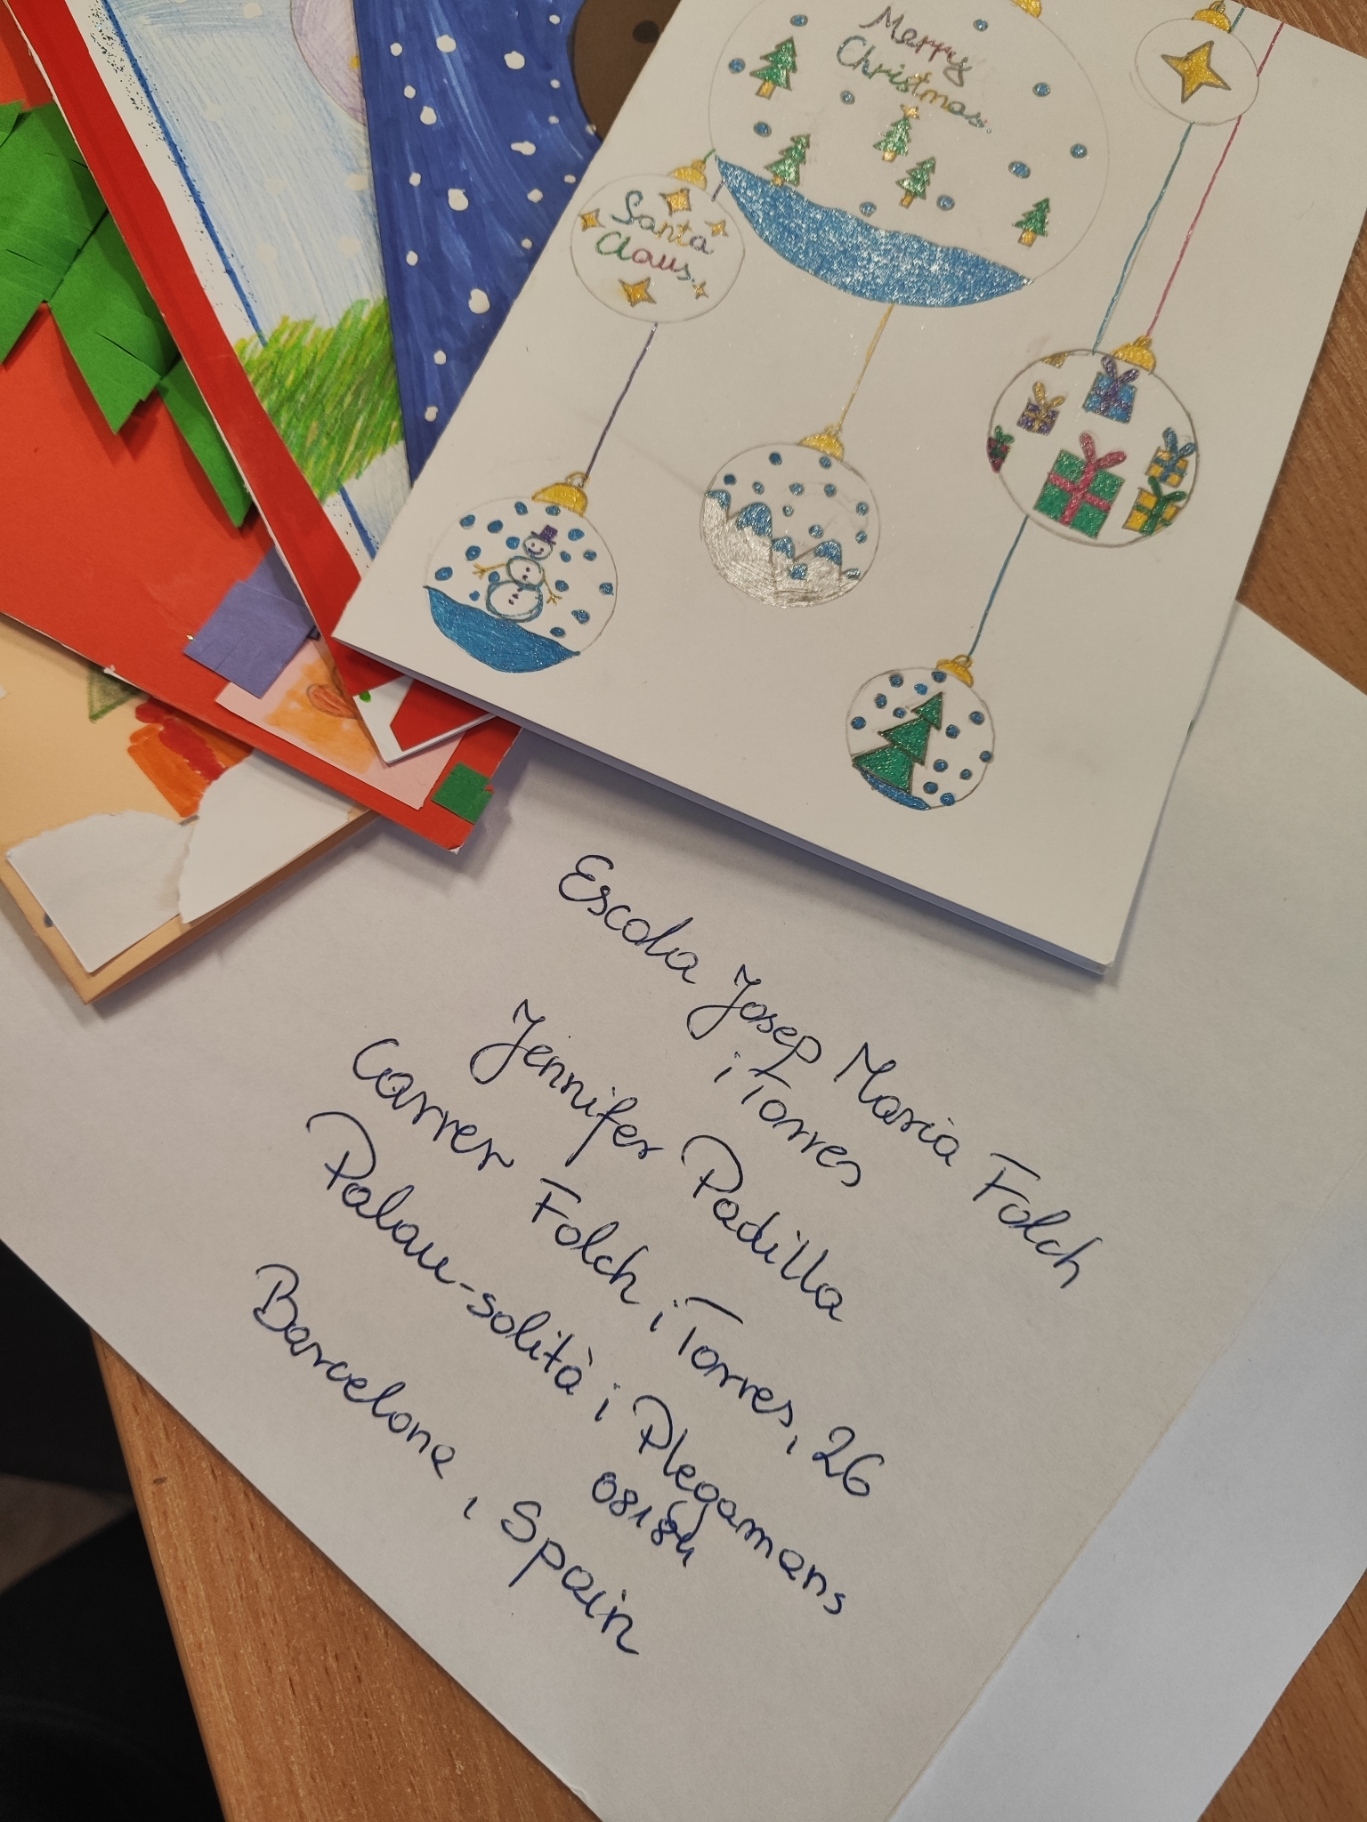 Merry
Christmas.
Santa
Claus.
Escola Josep Maria Folch
i Torres
Jennifer Padilla
Carrer Folch i Torres, 26
Palau-solità i Plegamans
08184
Barcelona, Spain